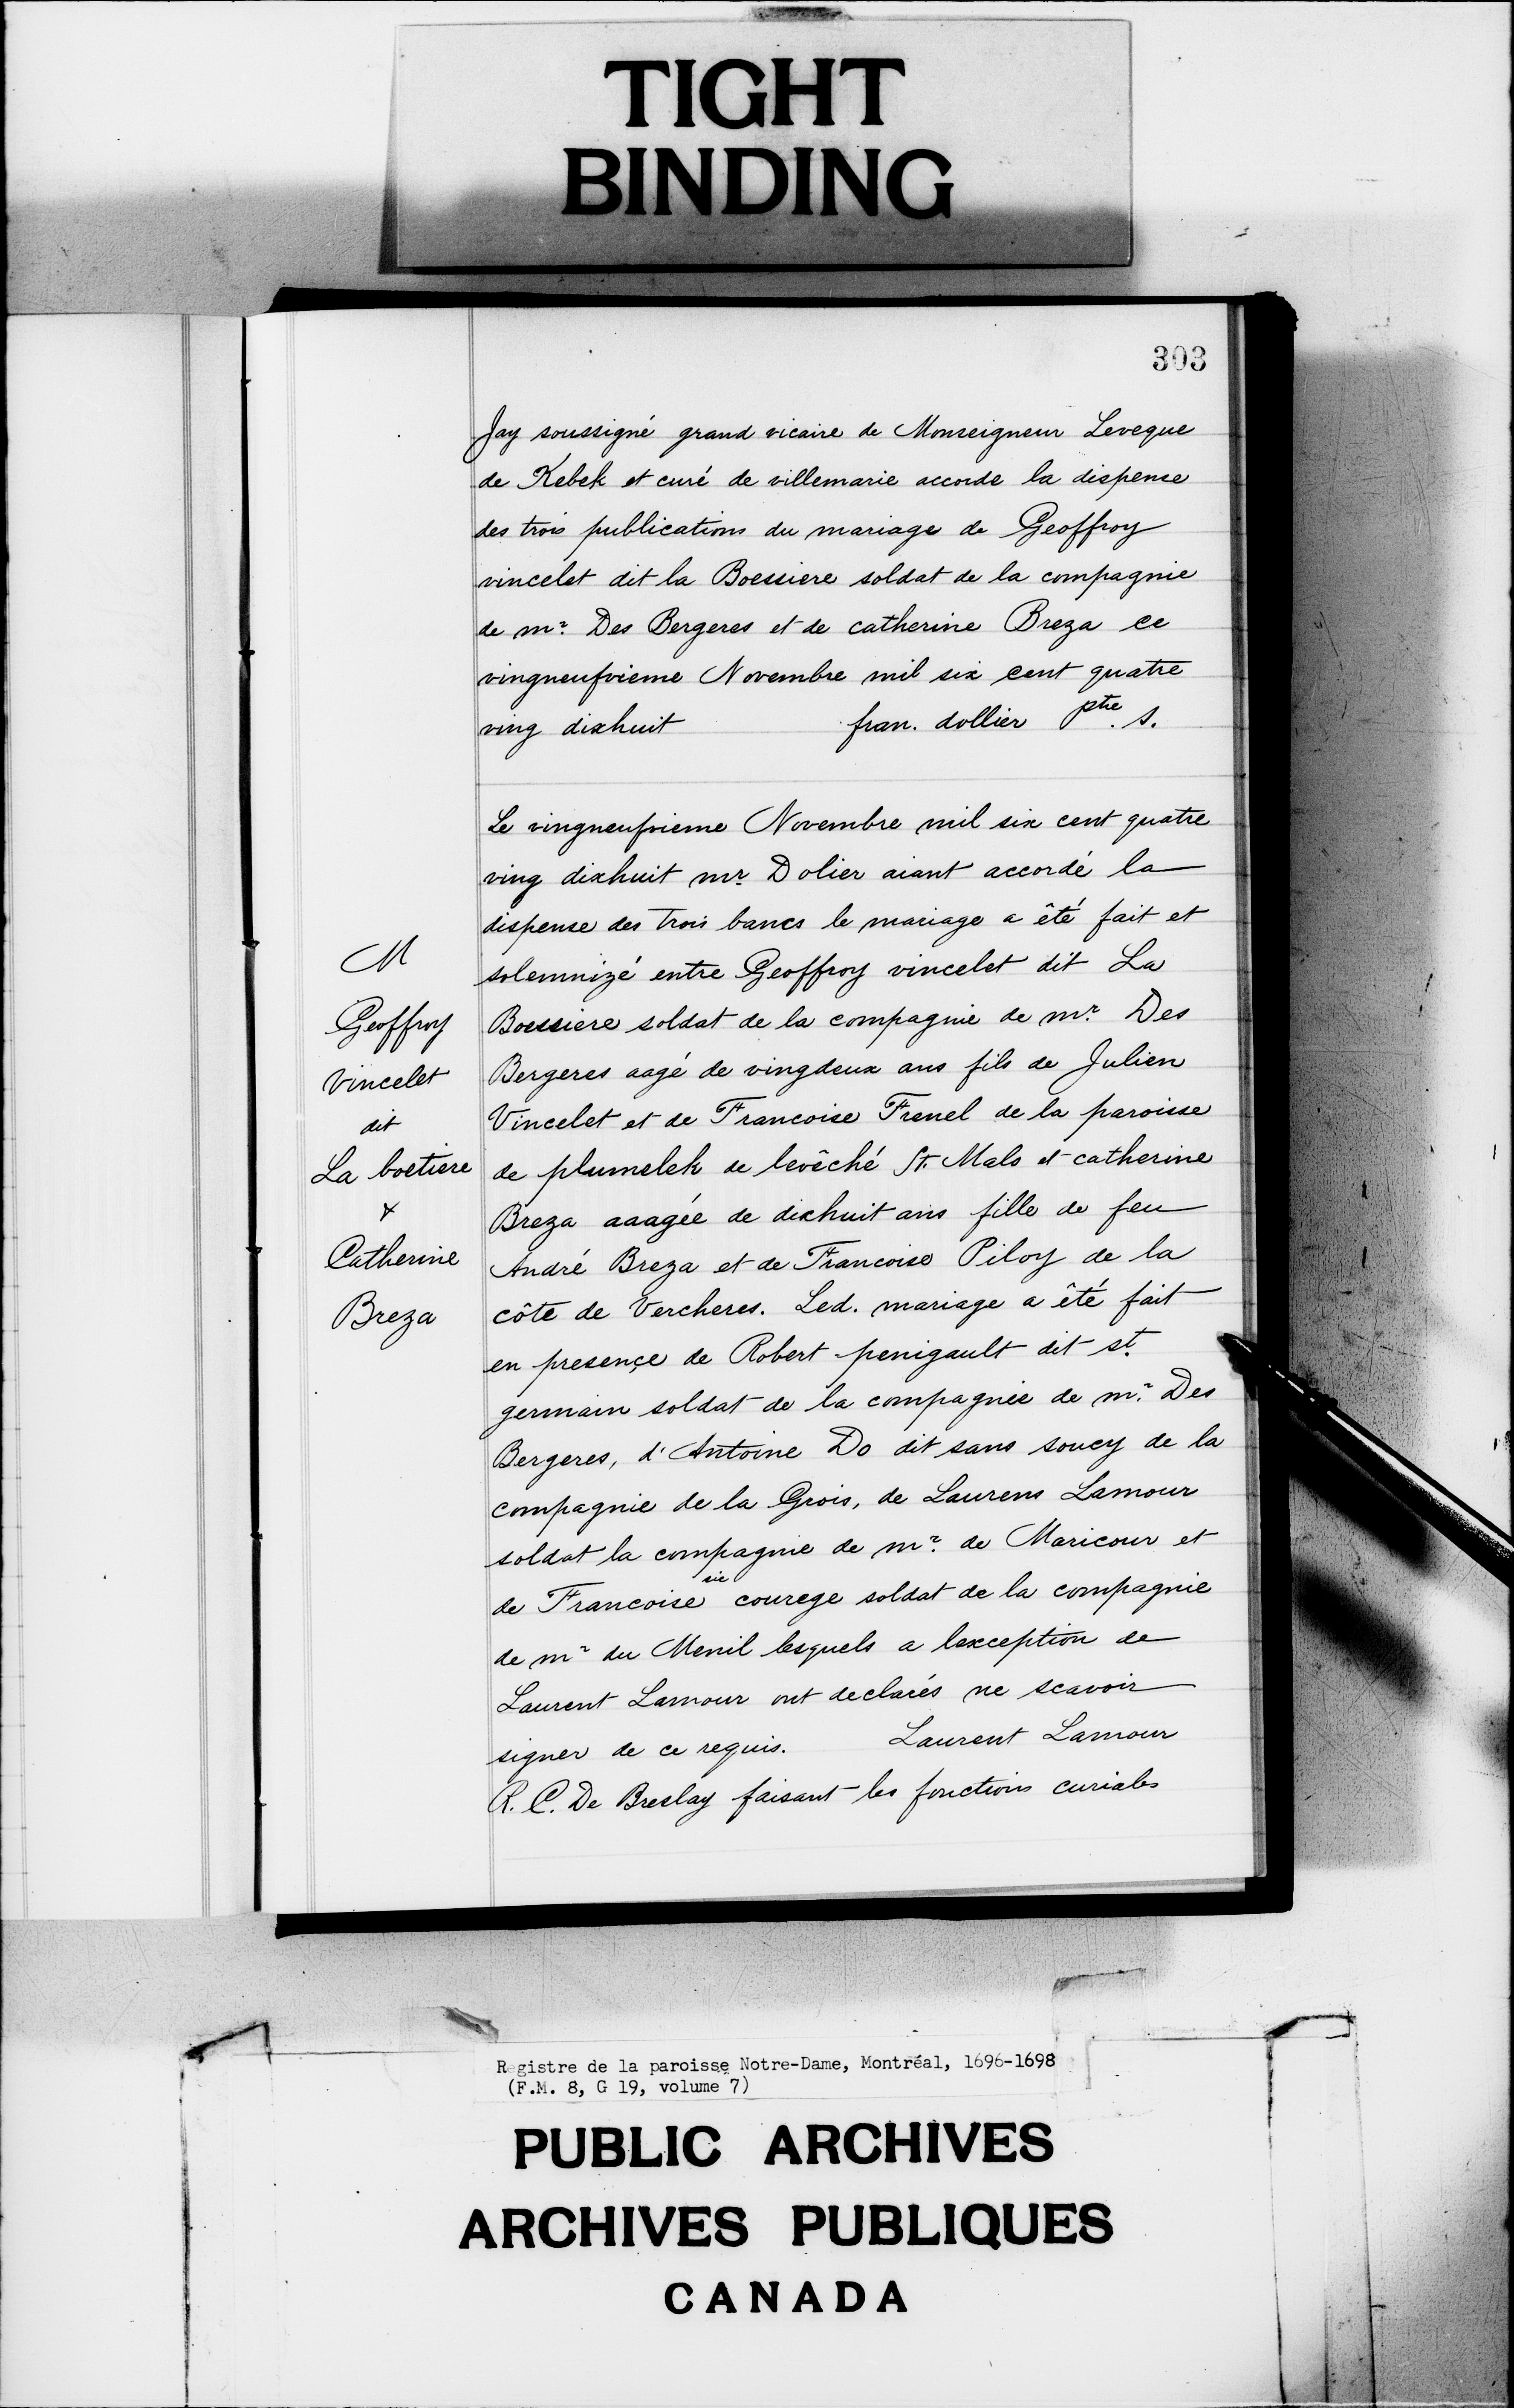 TIGHT
BINDING
303
Jay soussigné grand vicaire de Monseigneur Leveque
de Kebek et curé de villemarie accorde la dispense
des trois publications du mariage de Geoffroy
vincelet dit la Boessiere soldat de la compagnie
de mr. Des Bergeres et de catherine Breza ce
vingneufvieme Novembre mil six cent quatre
ving dixhuit fran. dollier ptre. s.
Le vingneufvieme Novembre mil six cent quatre
ving dixhuit mr. Dolier aiant accordé la
dispense des trois bancs le mariage a êté fait et
solemnizé entre Geoffroy vincelet dit La
Boessiere soldat de la compagnie de mr. Des
Bergeres aagé de vingdeux ans fils de Julien
Vincelet et de Francoise Frenel de la paroisse
de plumelek de levêché St. Malo et catherine
Breza aaagée de dixhuit ans fille de feu
André Breza et de Francoise Piloy de la
côte de Vercheres. Led. mariage a êté fait
en presençe de Robert penigault dit st.
germain soldat de la compagnie de mr. Des
Bergeres, d'Antoine Do dit sans soucy de la
compagnie de la Grois, de Laurens Lamour
soldat la compagnie de mr. de Maricour et
sic
de Francoise courege soldat de la compagnie
de mr du Menil lesquels a lexception de
Laurent Lamour ont declarés ne scavoir
signer de ce requis. Laurent Lamour
R. C. De Breslay faisant les fonctions curiales
M
Geoffroy
Vincelet
dit
La boetiere
&
Catherine
Breza
Registre de la paroisse Notre-Dame, Montréal, 1696-1698
(F.M. 8, G 19, volume 7)
PUBLIC ARCHIVES
ARCHIVES PUBLIQUES
CANADA